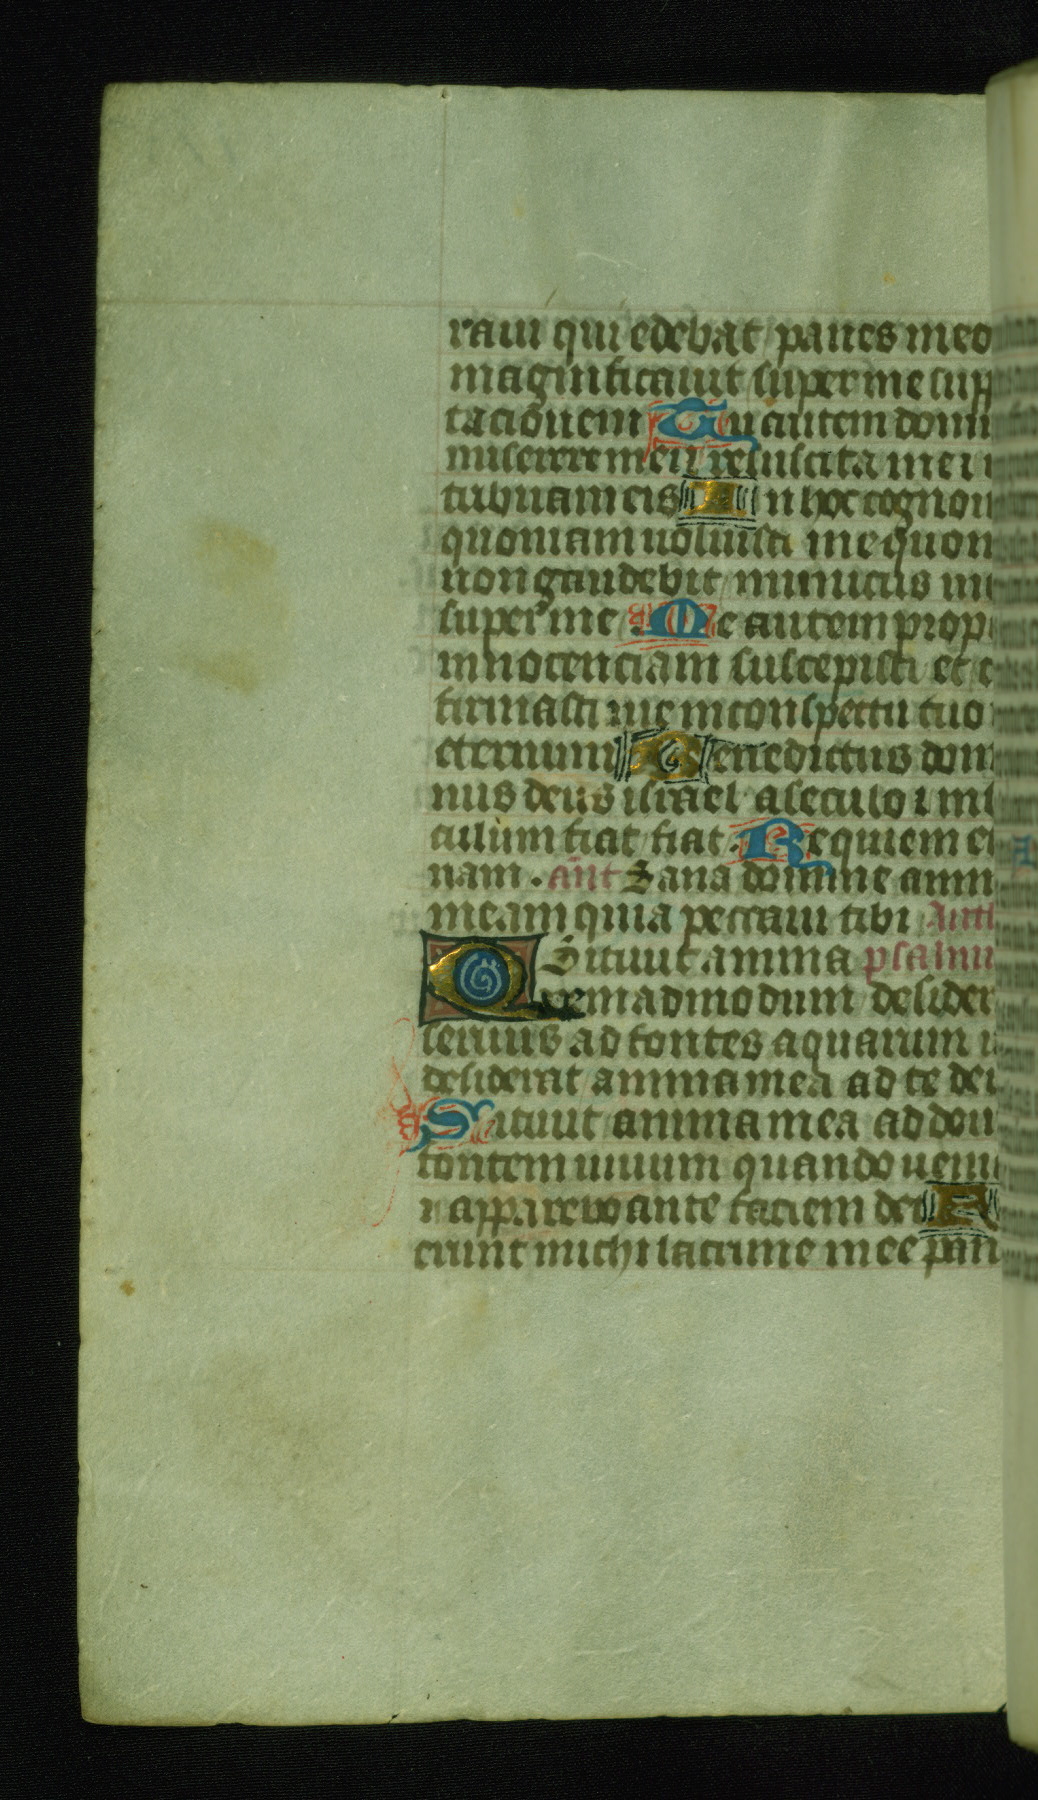 raui qui edebat panes meo
magnificauit super me supp
tacionem Tu autem domi
miserere mei i resuscita me i
tribuam eis In hoc cognoui
quoniam uoluisti me quon
non gaudebit inimicus me
super me Me autem prop
innocenciam suscepisti et c
firmasti me in conspectu tuo
eternum Benedictus dom
nus deus israel a seculo i in
culum fiat fiat. Requiem e
nam. ant Sana domine anim
meam quia peccaui tibi Anth
Sitiuit anima psalmu
Quemadmodum desider
seruus ad fontes aquarum i
desiderat anima mea ad te deu
Sitiuit anima mea ad deu
fontem uiuum quando ueni
i apparebo ante faciem dei
erunt michi lacrime mee pan